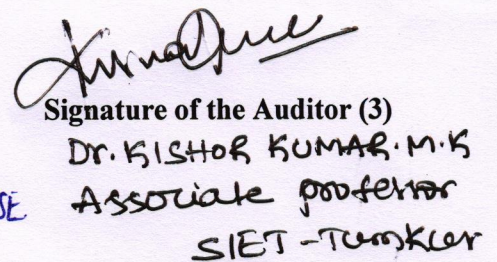 Signature of the Auditor (3)
Dr. KISHOR KUMAR. M.K
SE Associate professor
SIET - Tumkur